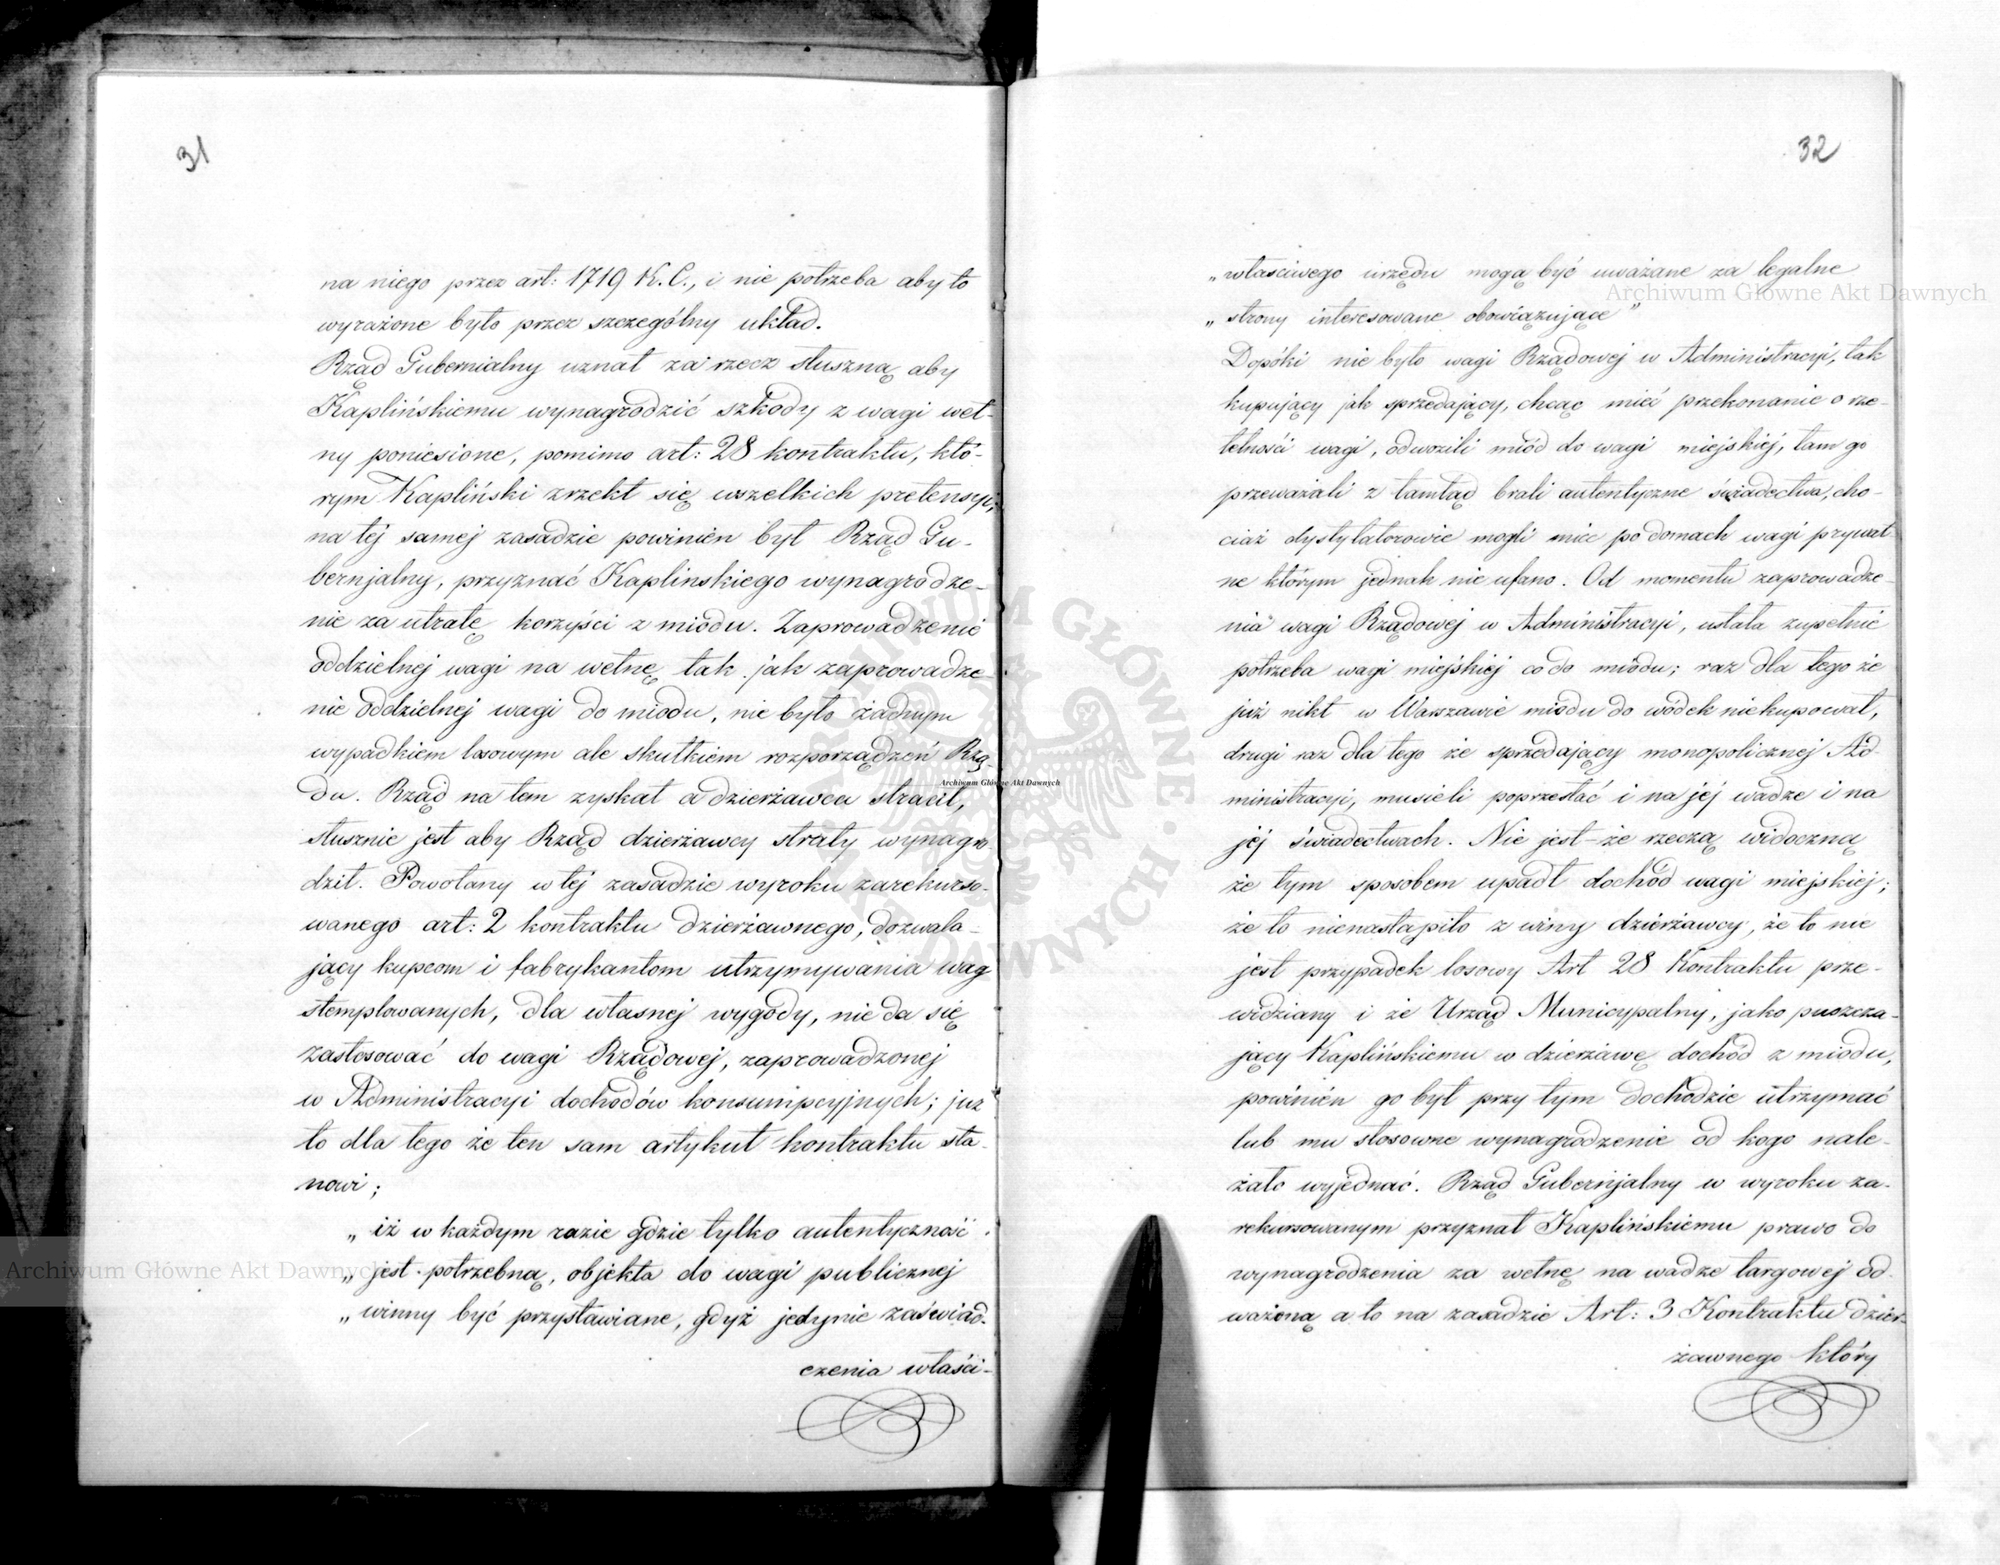 31
na niego przez art: 1719 K. C., i nie potrzeba aby to
wyrażone było przez szczególny układ.
Rząd Gubernialny uznał za rzecz słuszną aby
Kaplińskiemu wynagrodzić szkody z wagi weł-
ny poniesione, pomimo art: 28 kontraktu, któ-
rym Kapliński zrzekł się wszelkich pretensyi;
na tej samej zasadzie powinien był Rząd Gu-
bernjalny, przyznać Kaplinskiego wynagrodze-
nie za utratę korzyści z miodu. Zaprowadzenie
oddzielnej wagi na wełnę tak jak zaprowadze-
nie oddzielnej wagi do miodu, nie było żadnym
wypadkiem losowym ale skutkiem rozporządzeń Rzą-
du. Rząd na tem zyskał a dzierżawca stracił,
słusznie jest aby Rząd dzierżawcy straty wynagro-
dził. Powołany w tej zasadzie wyroku zarekurso-
wanego art: 2 kontraktu dzierżawnego, dozwala-
jący kupcom i fabrykantom utrzymywania wag
stemplowanych, dla własnej wygody, nie da się
zastosować do wagi Rządowej, zaprowadzonej
w Administracyi dochodów konsumpcyjnych; juz
to dla tego że ten sam artykuł kontraktu sta-
nowi;
„ iż w każdym razie gdzie tylko autentyczność
„ jest potrzebną, objekta do wagi publicznej
„ winny być przystawiane, gdyż jedynie zaświad-
czenia właści-
32
„ właściwego urzędu mogą być uważane za legalne
„ strony interesowane obowiązujące”
Dopóki nie było wagi Rządowej w Administracyi, tak
kupujący jak sprzedający, chcąc mieć przekonanie o rze-
telności wagi, odwozili miód do wagi miejskiej, tam go
przeważali z tamtąd brali autentyczne świadectwa, cho-
ciaż dystylatorowie mogli mieć po domach wagi prywat-
ne którym jednak nie ufano. Od momentu zaprowadze-
nia wagi Rządowej w Administracyi, ustała zupełnie
potrzeba wagi miejskiej co do miodu; raz dla tego że
już nikt w Warszawie miodu do wódek niekupował,
drugi raz dla tego że sprzedający monopolicznej Ad-
ministracyi, musieli poprzestać i na jej wadze i na
jej świadectwach. Nie jest-że rzeczą widoczną
że tym sposobem upadł dochód wagi miejskiej;
że to nienastąpiło z winy dzierżawcy, że to nie
jest przypadek losowy Art 28 Kontraktu prze-
widziany i że Urząd Municypalny, jako puszcza-
jący Kaplińskiemu w dzierżawę dochód z miodu,
powinien go był przy tym dochodzie utrzymać
lub mu stosowne wynagrodzenie od kogo nale-
żało wyjednać. Rząd Gubernjalny w wyroku za-
rekursowanym przyznał Kaplińskiemu prawo do
wynagrodzenia za wełnę na wadze targowej od-
ważoną a to na zasadzie Art: 3 Kontraktu dzier-
żawnego który
Archiwum Główne Akt Dawnych
Archiwum Główne Akt Dawnych
Archiwum Główne Akt Dawnych
ARCHIWUM GŁÓWNE AKT DAWNYCH